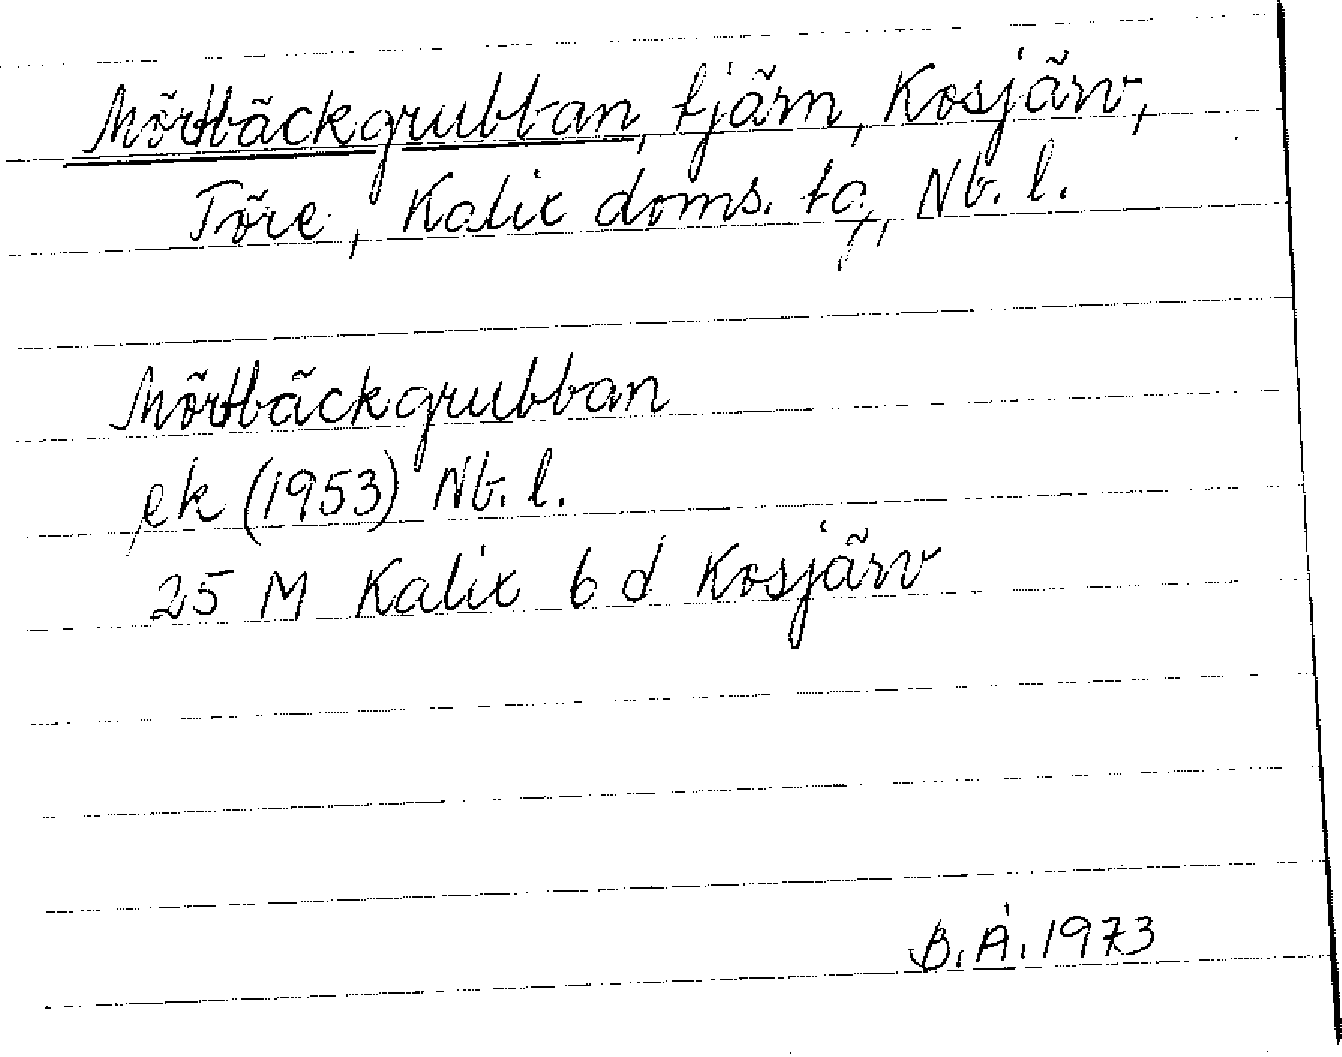 Mörtbäckgrubban, tjärn, Kosjärv,
Töre, Kalix doms. tg, Nb. l.
Mörtbäckgrubban
ek (1953) Nb. l.
25 M Kalix 6 d Kosjärv
B. Å. 1973